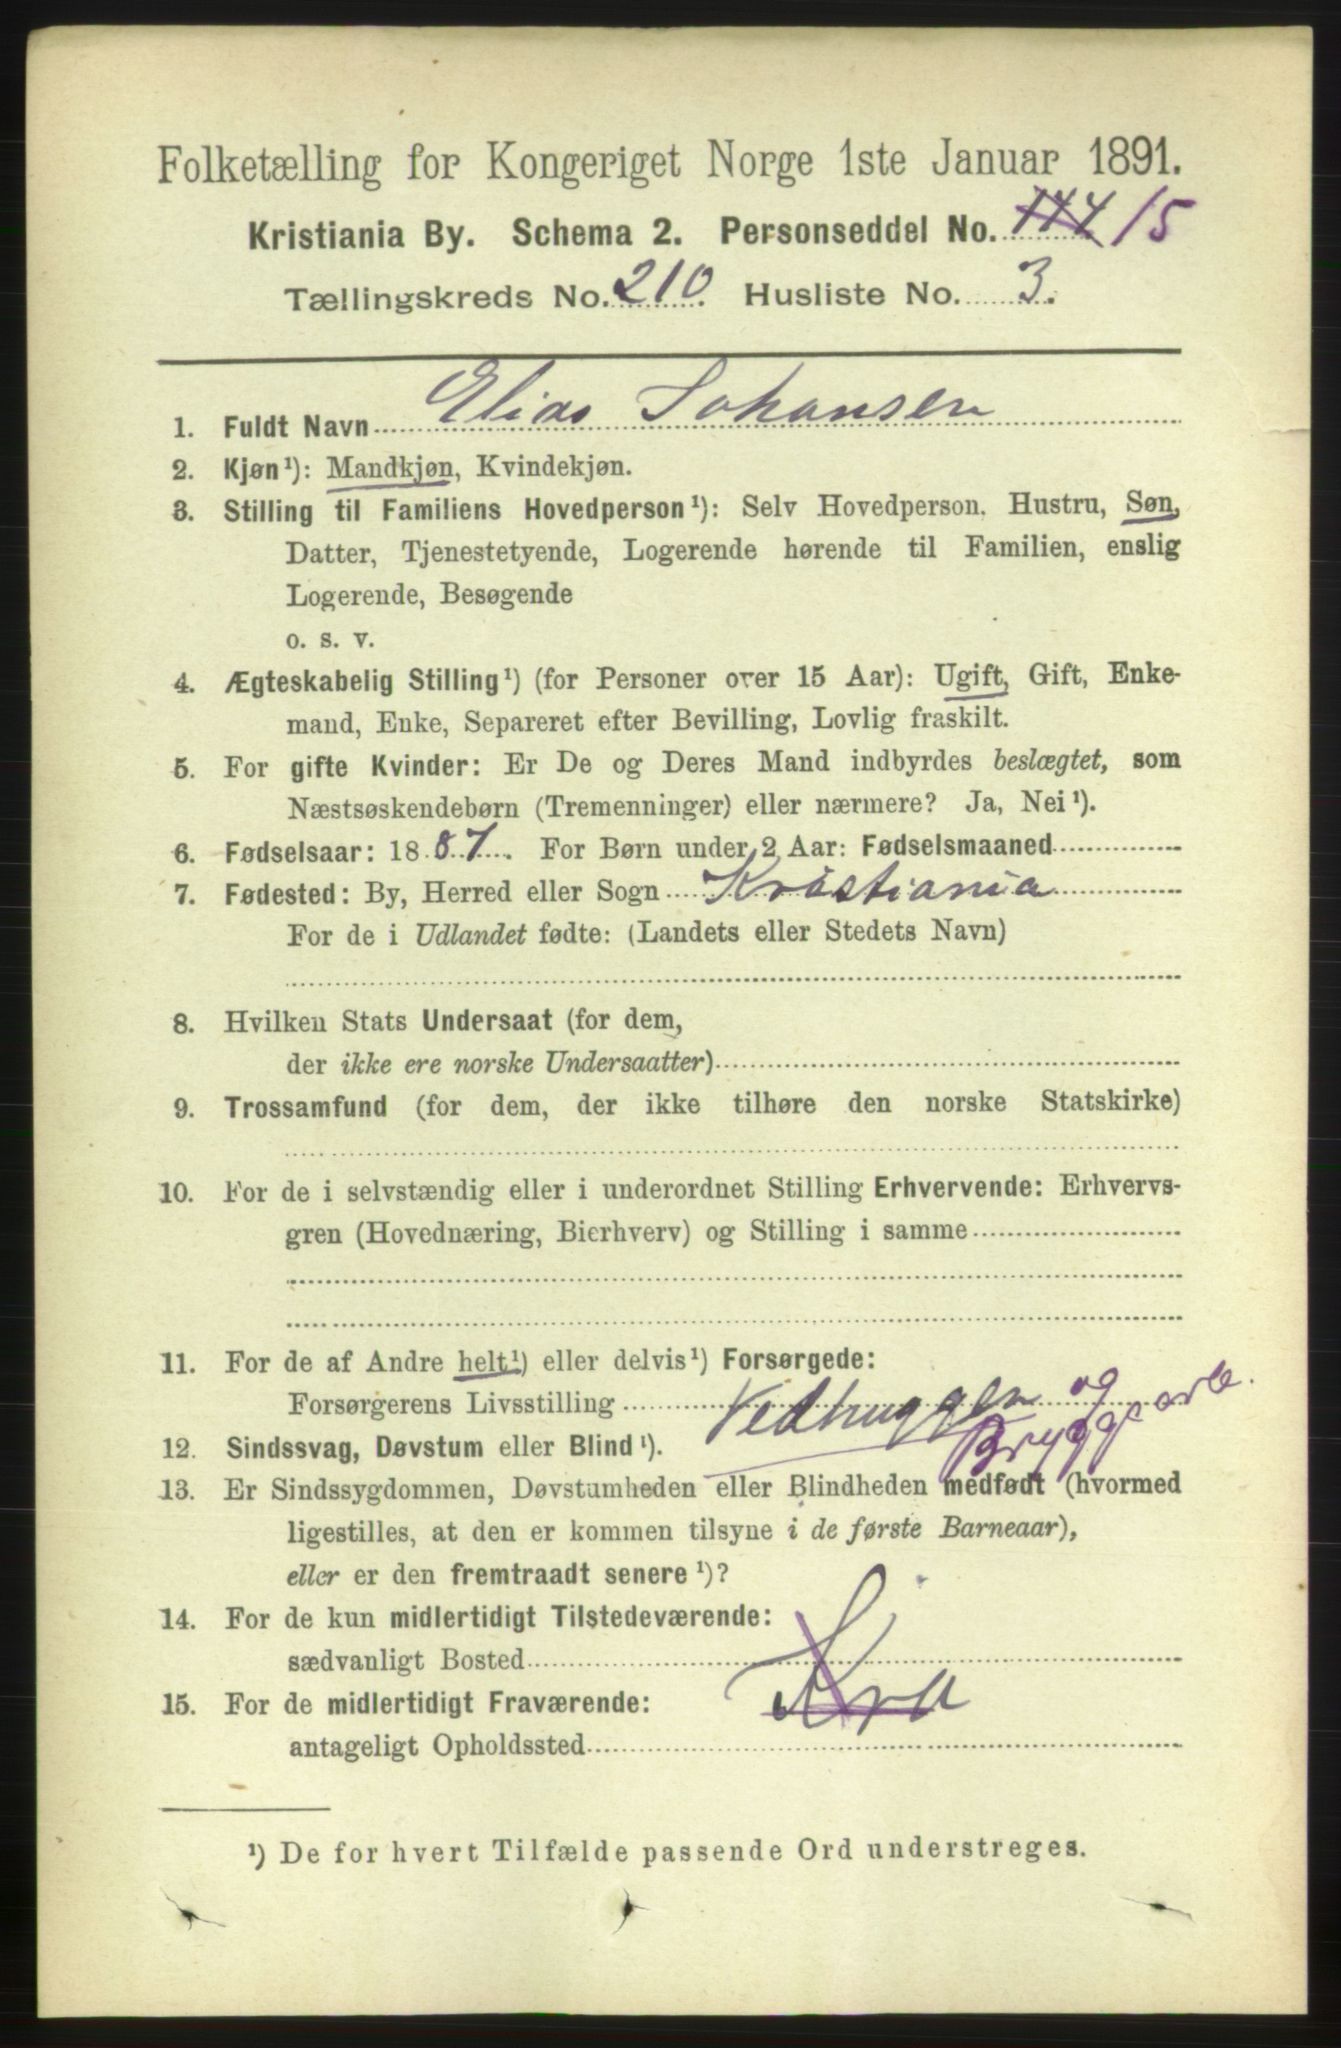 Folketælling for Kongeriget Norge 1ste Januar 1891.
Kristiania By. Schema 2. Personseddel No. 144 15
Tællingskreds No. 210. Husliste No. 3.
1. Fuldt Navn Elias Johansen
2. Kjøn¹): Mandkjøn, Kvindekjøn.
3. Stilling til Familiens Hovedperson¹): Selv Hovedperson. Hustru, Søn,
Datter, Tjenestetyende, Logerende hørende til Familien, enslig
Logerende, Besøgende
o. s. v.
4. Ægteskabelig Stilling¹) (for Personer over 15 Aar): Ugift, Gift, Enke-
mand, Enke, Separeret efter Bevilling, Lovlig fraskilt.
5. For gifte Kvinder: Er De og Deres Mand indbyrdes beslægtet, som
Næstsøskendebørn (Tremenninger) eller nærmere? Ja, Nei¹).
6. Fødselsaar: 1887. For Børn under 2 Aar: Fødselsmaaned
7. Fødested: By, Herred eller Sogn Kristiania
For de i Udlandet fødte: (Landets eller Stedets Navn)
8. Hvilken Stats Undersaat (for dem,
der ikke ere norske Undersaatter)
9. Trossamfund (for dem, der ikke tilhøre den norske Statskirke)
10. For de i selvstændig eller i underordnet Stilling Erhvervende: Erhvervs-
gren (Hovednæring, Bierhverv) og Stilling i samme
11. For de af Andre helt¹) eller delvis¹) Forsørgede:
Forsørgerens Livsstilling Vedhugger og
Bryggearb.
12. Sindssvag, Døvstum eller Blind¹).
13. Er Sindssygdommen, Døvstumheden eller Blindheden medfødt (hvormed
ligestilles, at den er kommen tilsyne i de første Barneaar),
eller er den fremtraadt senere¹)?
14. For de kun midlertidigt Tilstedeværende:
sædvanligt Bosted
15. For de midlertidigt Fraværende: Kra
antageligt Opholdssted
¹) De for hvert Tilfælde passende Ord understreges.